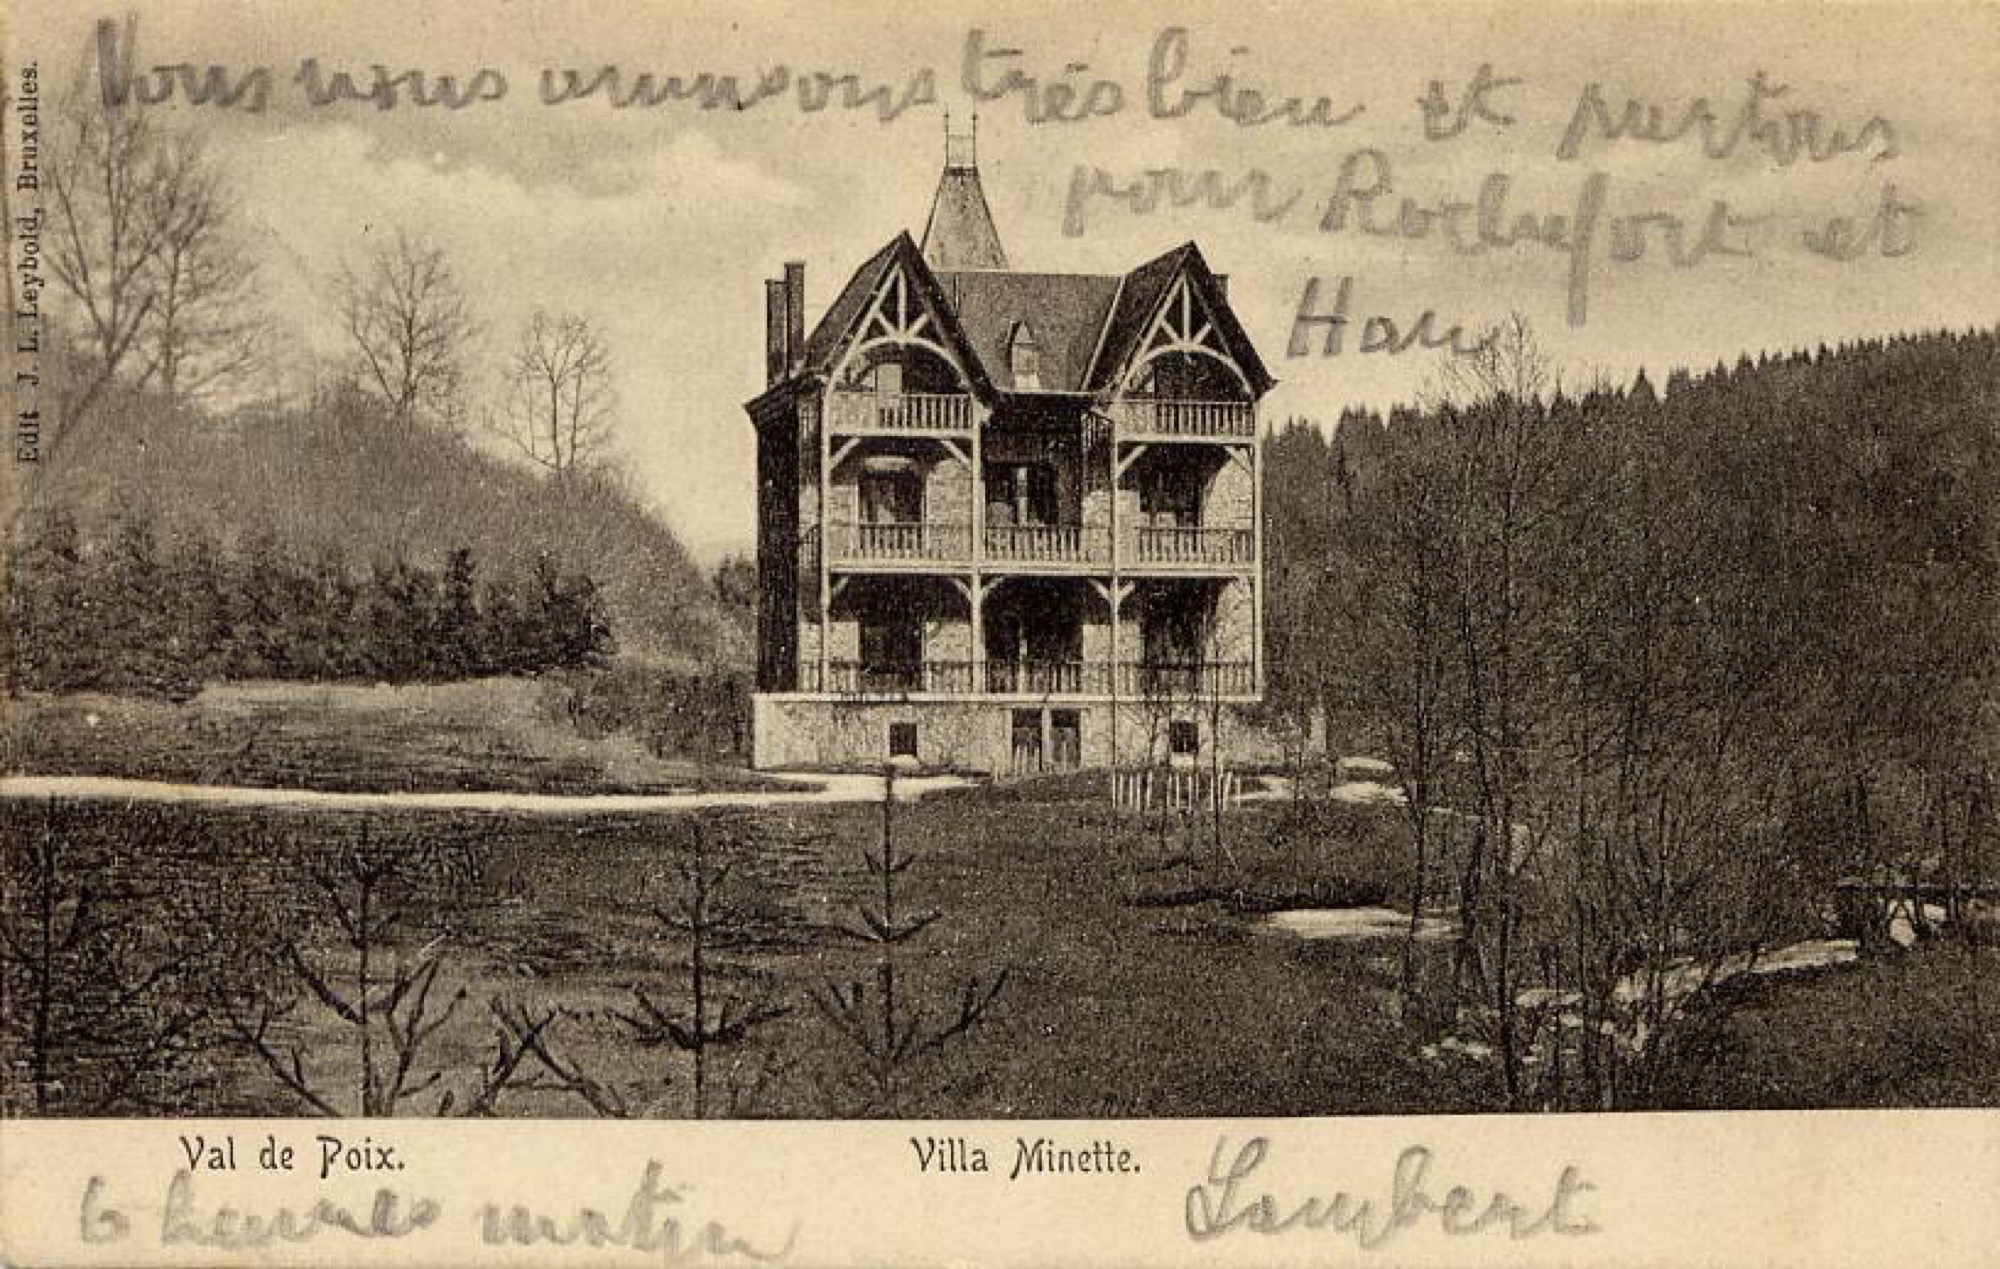 Nous nous amusons très bien et partons
pour Rochefort et
Han
Edit J. L. Leybold, Bruxelles.
Val de Poix.
Villa Minette.
6 heures matin
Lambert